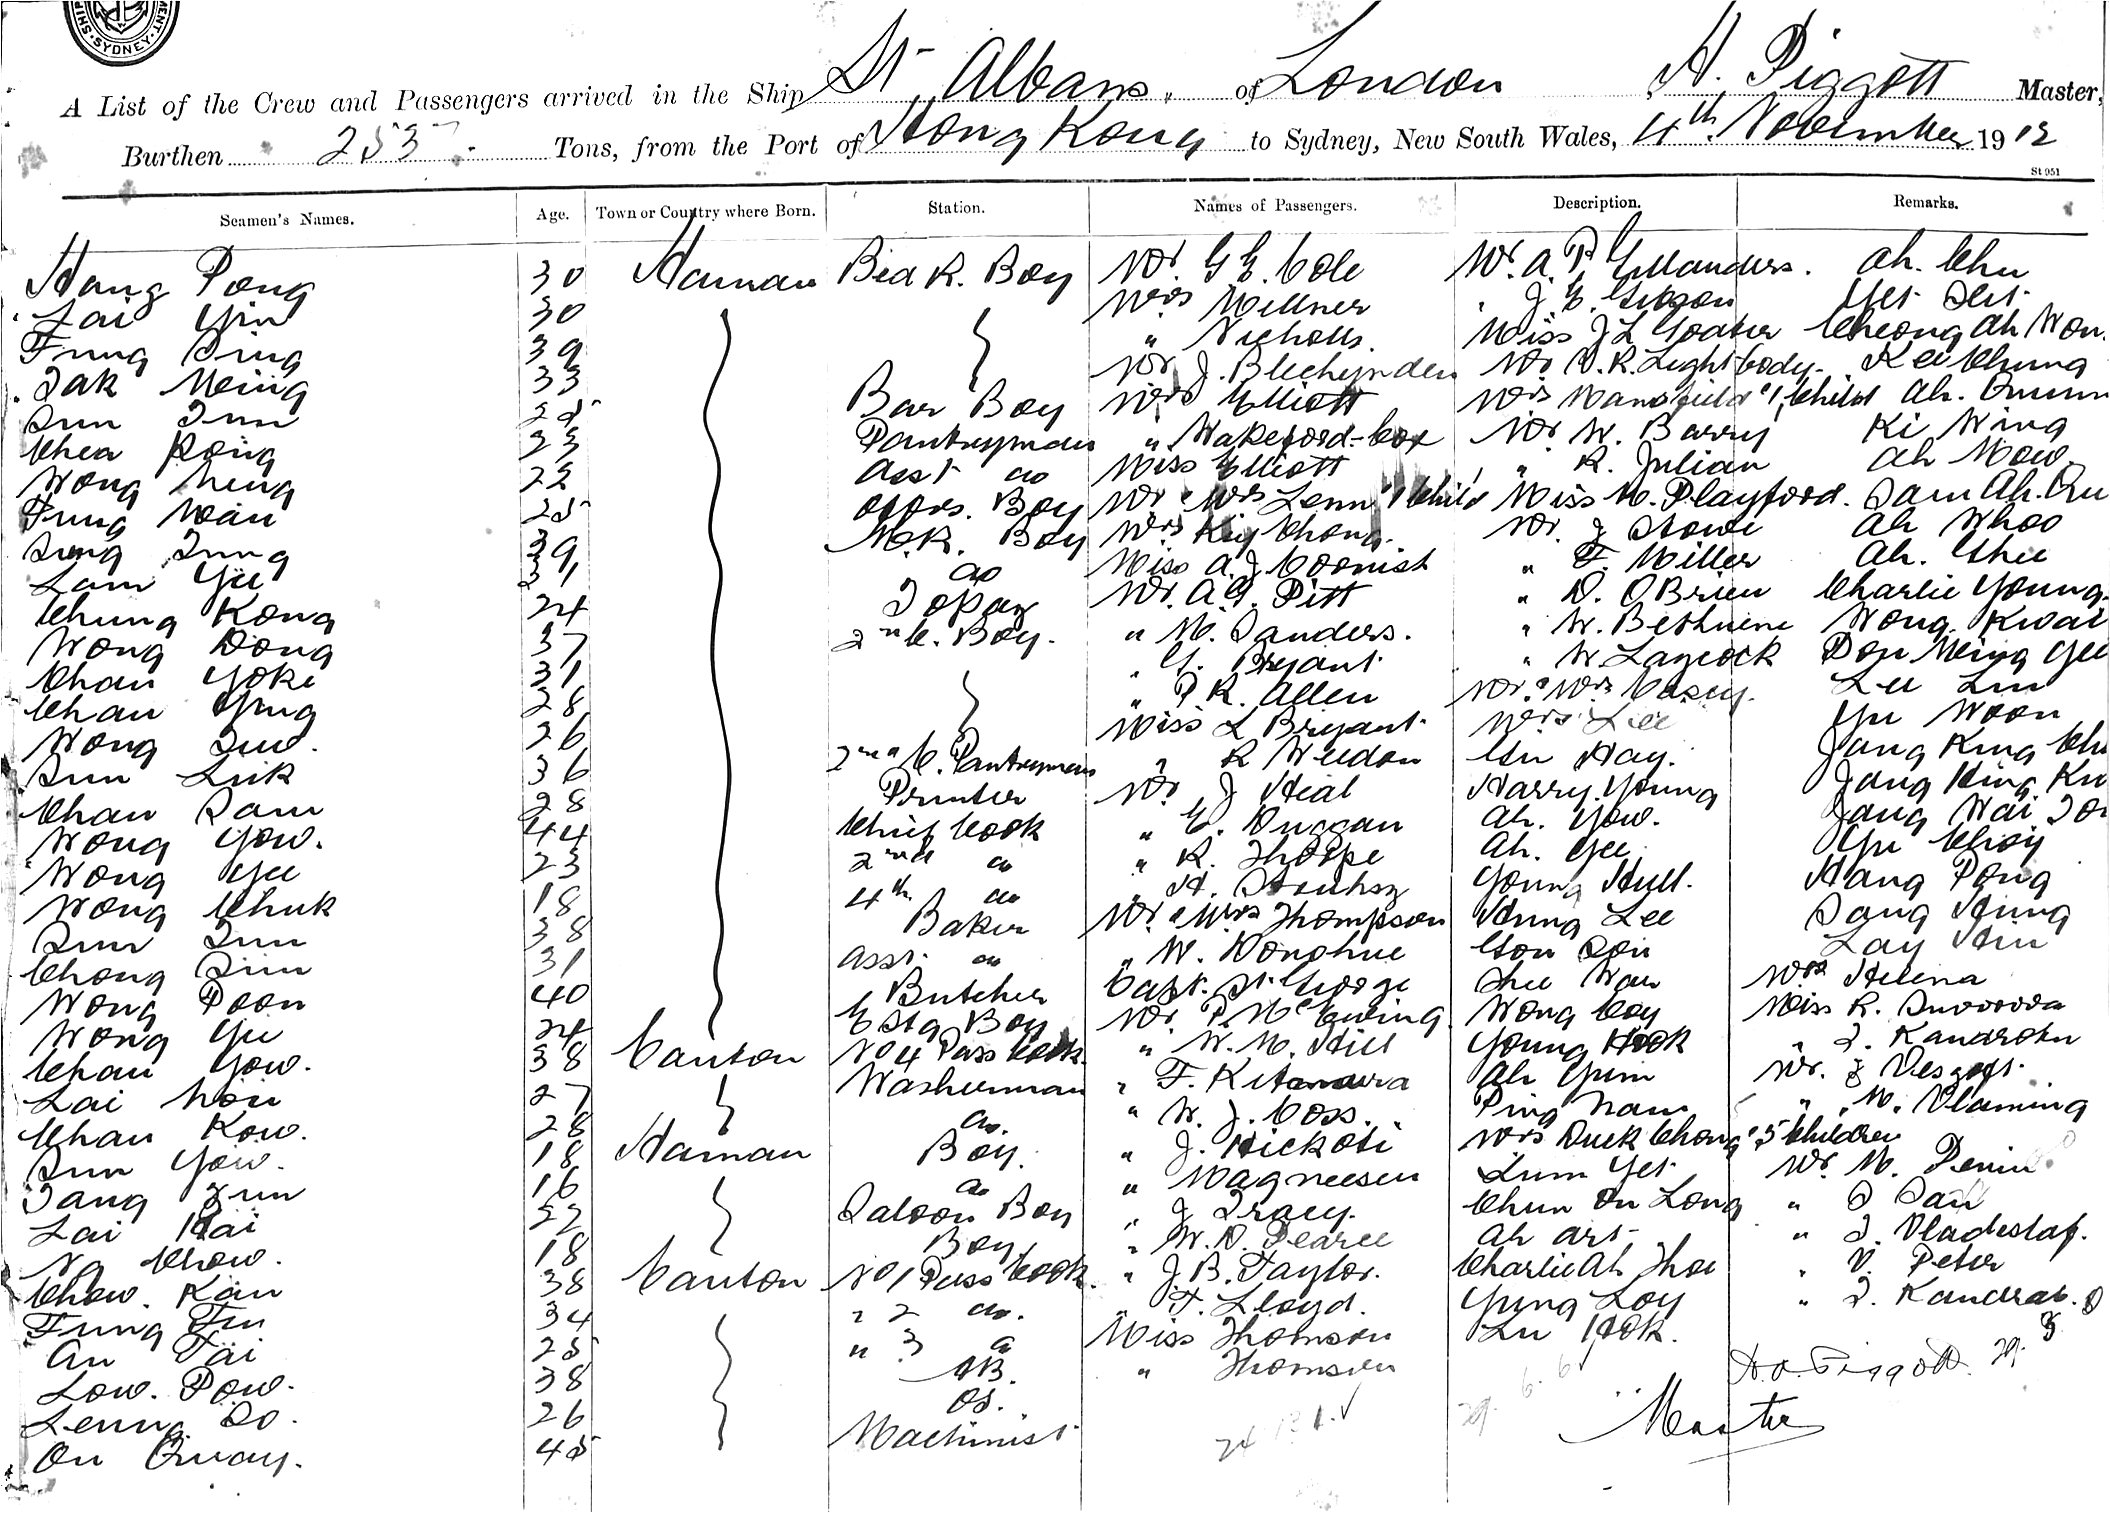 SYDNEY
A List of the Crew and Passengers arrived in the Ship St Albans, of London H. Piggott Master,
Burthen 253 Tons, from the Port of Hong Kong to Sydney, New South Wales, 4th November 1912
St 951
Seamen's Names. Age. Town or Country where Born. Station. Names of Passengers. Description. Remarks.
Hang Pong 30 Hainan Bed R. Boy Mr. G E. Cole Mr. A. P. Ah. Chu
Lai Yin 30 Mrs Millner " J. E. Gibson Yet
Fung Sing 39 " Nicholls. Miss J L Goatier Cheong Ah Won
Tak Ming 33 Mr J. Blechynden Mr V. R. Lightbody. Kee Chung
Sun Sun 25 Bar Boy Mrs Elliott Mrs Mansfield & 1 Child Ah. Quinn
Chea Kong 23 Pantryman " Wakeford-Cox Mr W. Barry Ki Wing
Wong Ning 22 Asst do Miss Elliott " R. Julian Ah Mow.
Fung Man 25 Offrs. Boy Mr & Mrs Lenn 1 Child Miss M. Playford. Sam Ah. Qu
Sung Sung 39 M.R. Boy Mrs Key Chong. Mr. J Howe Ah Whoo
Lam Yee 31 do Miss A. J. Coornish " F. Miller Ah. Ghee
Chung Kong 24 Topaz Mr. A. G. Pitt " D. O'Brien Charlie Young.
Wong Dong 37 2nd C. Boy. " M. Sanders. " W. Bethuene Wong. Kwai
Chan Yoke 31 " G. Bryant " W Laycock Pon Ming Gee
Chan Ying 28 " P R. Allen Mr. & Mrs Casey. Lee Lin
Wong Suw. 26 Miss L Bryant Mrs Lee Yee Woon
Sun Luk 36 2nd C. Pantryman " R Weedon Gin Hay. Jang King Chu
Chan Sam 28 Printer Mr J Heal Harry Young Jang King Ku
Wong Yow. 44 Chief Cook " E. Duggan Ah. Yow. Jang Wai
Wong Yee 23 2nd do " R. Thorpe Ah. Yee Yee Choy
Wong Chuk 18 4th do " H. Young Hull. Hang Pong
Sun Sun 38 Baker Mr & Mrs Thompson Hung Lee Sang Hung
Chong Sun 31 Asst. do " W. Donohue Gon Son Lay Hin
Wong Poon 40 Butcher Capt. St. George Shee Wan Mrs Helena
Wong Yee 24 E Stg Boy Mr. P. McEwing Wong Coy Miss R.
Chan Yow. 38 Canton No 4 Pass Cook. " W. M. Hill Young Hook " S. Kandrohn
Lai Noii 27 Washerman " F. Kitamura Ah Yum Mr. J
Chan Kow. 28 do. " W. J. Coss. Ping Nam " M. Vlaming
Sun Yow. 18 Hainan Boy. " J. Hickoti Mrs Duck Chong & 5 Children
Tang Sun 16 do " Magneesen Lum Yet Mr. M. Penin
Lai Kai 22 Saloon Boy " J Tracy. Chun On Long " S San
Ng Chow. 18 Boy " W. D. Pearce Ah Art " S. Vladislaf.
Chew. Kan 38 Canton No 1 Pass Cook. " J. B. Taylor. Charlie Ah Thoe " V. Peter
Fung Fu 34 " 2 do. " F. Lloyd. Yung Loy " S. Kandrab.
Au Tai 25 " 3 do Miss Thomson Lu Hok.
Low. Pow. 38 AB. " Thomson H. A. Piggott.
Leung So. 26 OS. Master
On Quay. 45 Machinist